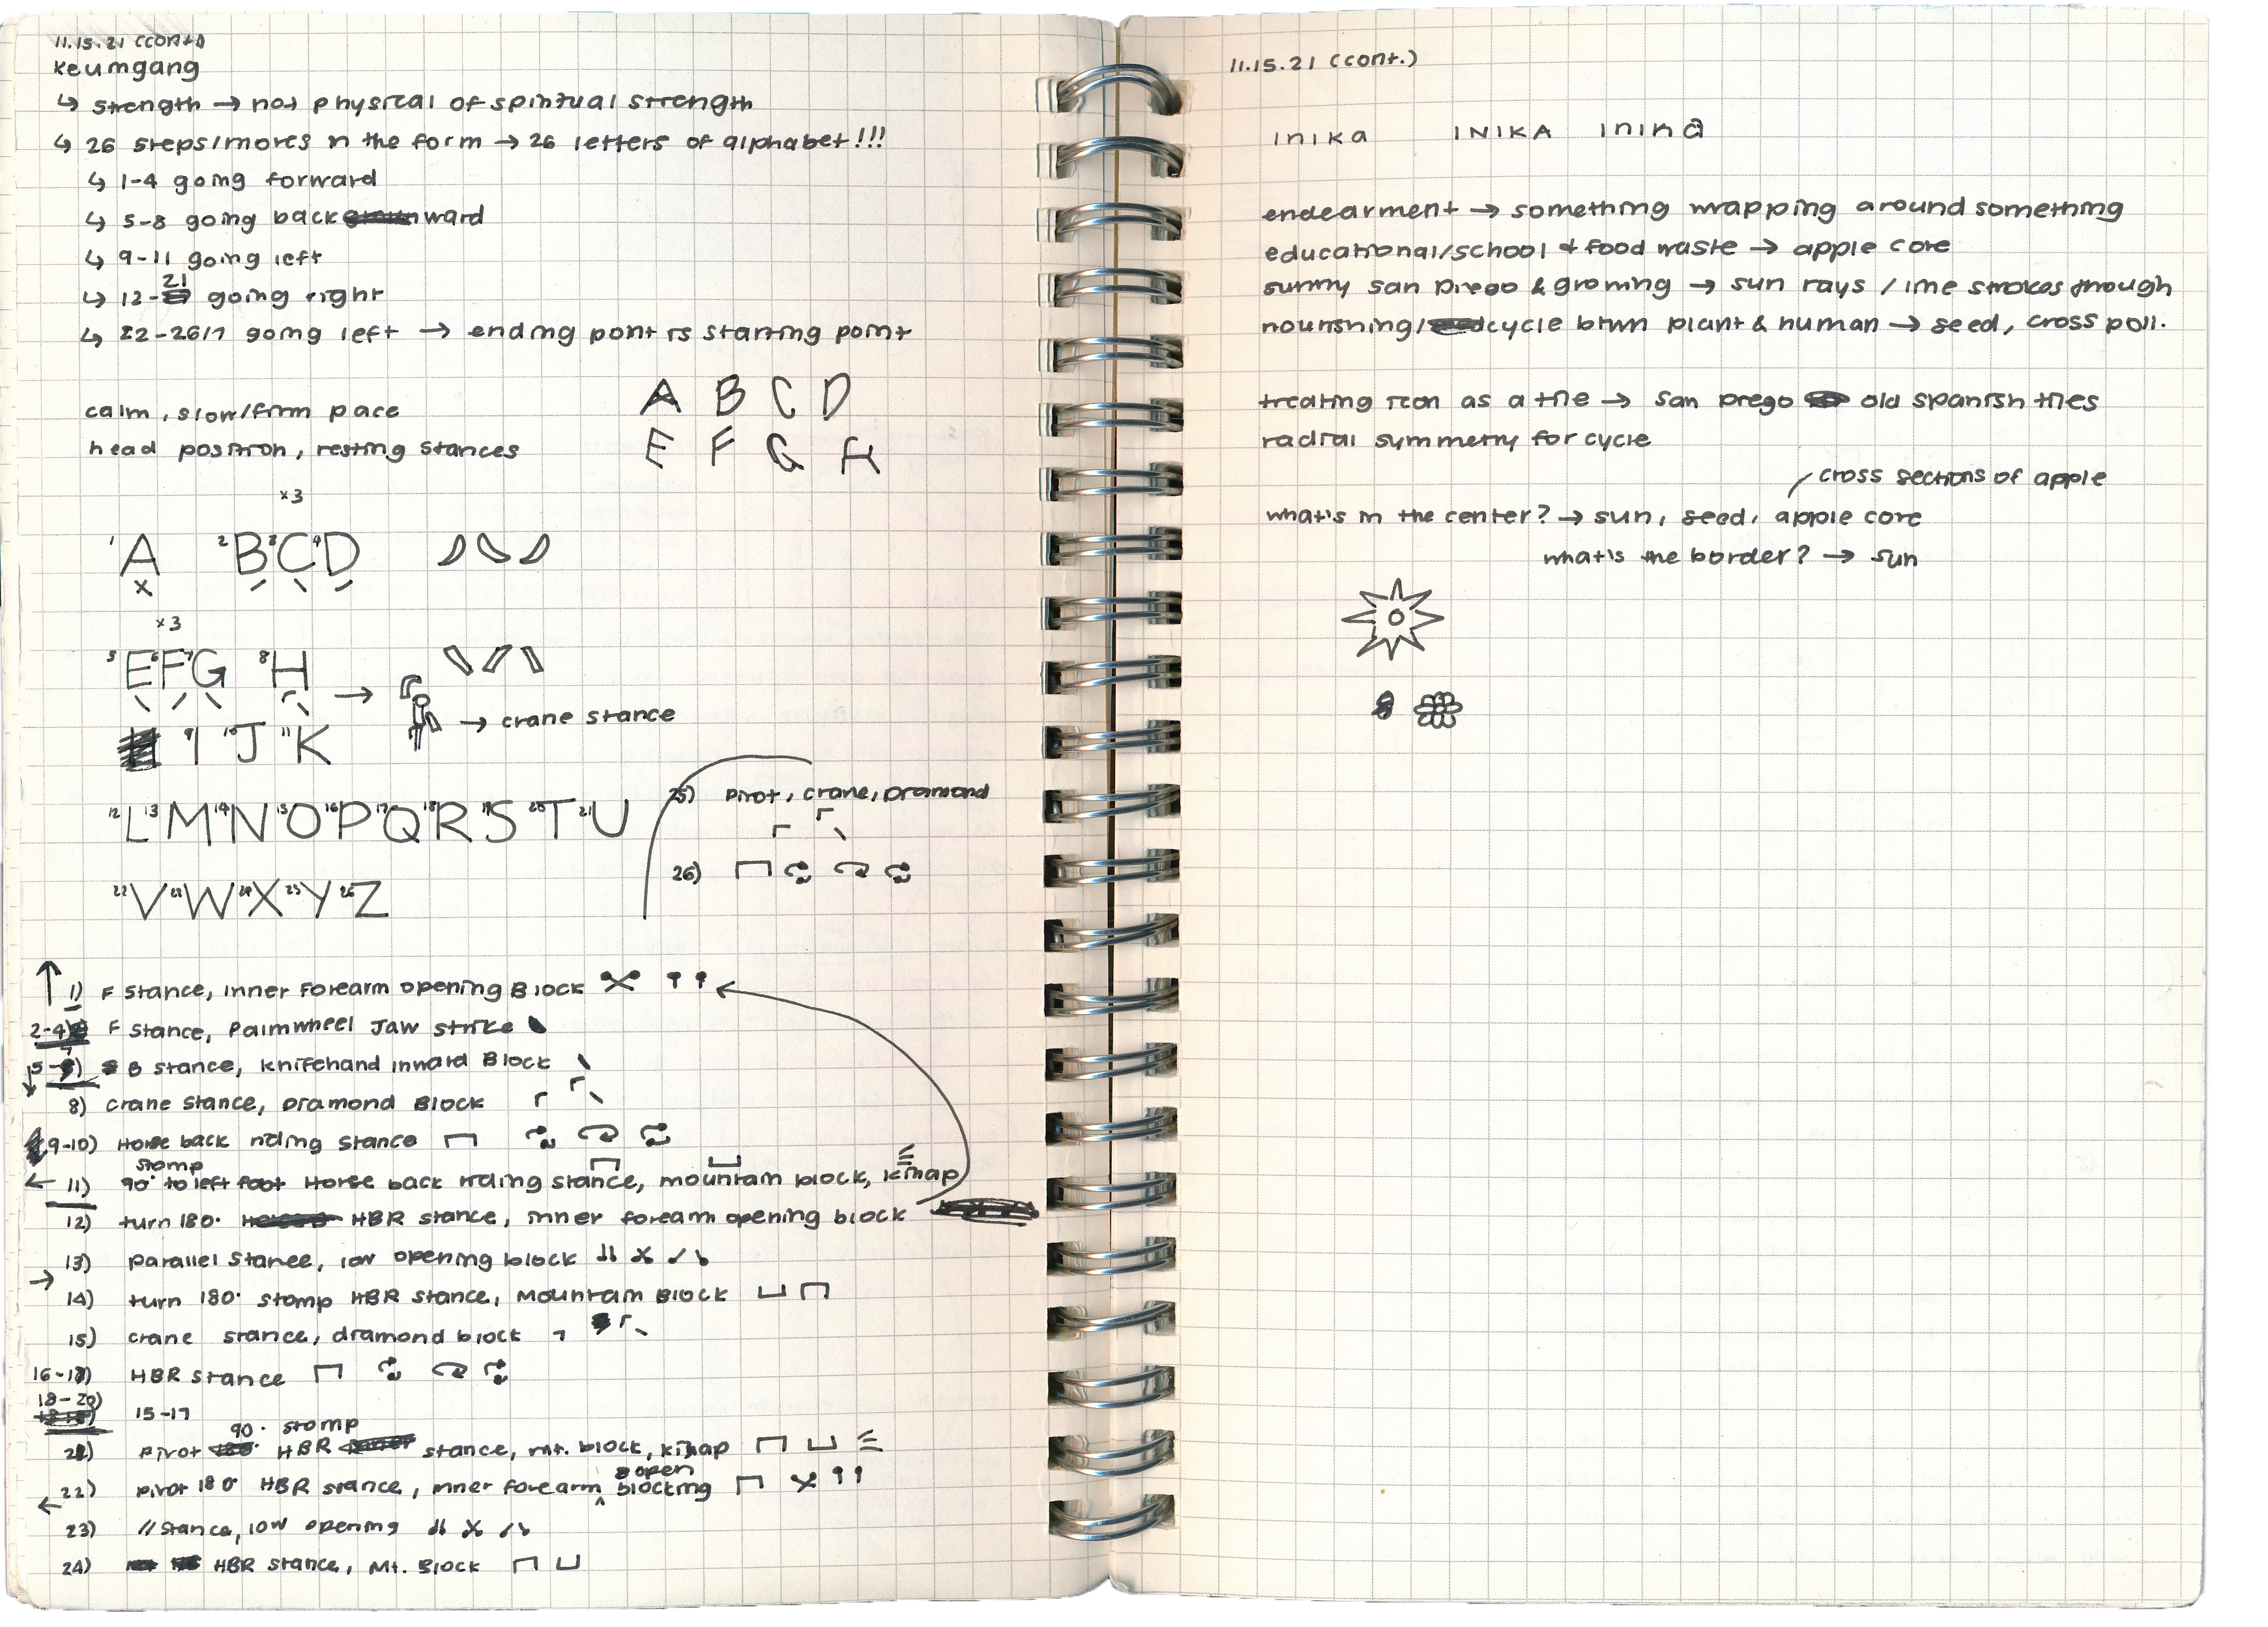 11.15.21 (cont.)
Keumgang
↳ strength → not physical of spiritual strength
↳ 26 steps/moves in the form → 26 letters of alphabet!!!
↳ 1-4 going forward
↳ 5-8 going backward
↳ 9-11 going left
↳ 12-21 going right
↳ 22-26/7 going left → ending point is starting point
calm, slow/firm pace
head position, resting stances
A B C D
E F G H
x3
1A 2B 3C 4D
x3
5E 6F 7G 8H →
→ crane stance
9I 10J 11K
12L 13M 14N 15O 16P 17Q 18R 19S 20T 21U
22V 23W 24X 25Y 26Z
25) pivot, crane, diamond
26)
1) F stance, inner forearm opening Block
2-4) F stance, Palmwheel Jaw strike
5-7) B stance, knifehand inward Block
8) crane stance, Diamond Block
9-10) Horse back riding stance
stomp
11) 90° to left foot Horse back riding stance, mountain block, kihap
12) turn 180° HBR stance, inner foream opening block
13) parallel stance, low opening block
14) turn 180° stomp HBR stance, Mountain Block
15) crane stance, diamond block
16-17) HBR stance
18-20) 15-17
90° stomp
21) pivot HBR stance, mt. block, kihap
open
22) pivot 180° HBR stance, inner forearm ^ blocking
23) // stance, low opening
24) HBR stance, Mt. Block
11.15.21 (cont.)
Inika INIKA Inika
endearment → something wrapping around something
educational/school & food waste → apple core
sunny san diego & growing → sun rays / line strokes through
nourishing/cycle btwn plant & human → seed, cross poll.
treating icon as a tile → san diego old spanish tiles
radial symmetry for cycle
cross sections of apple
what's in the center? → sun, seed, apple core
what's the border? → sun